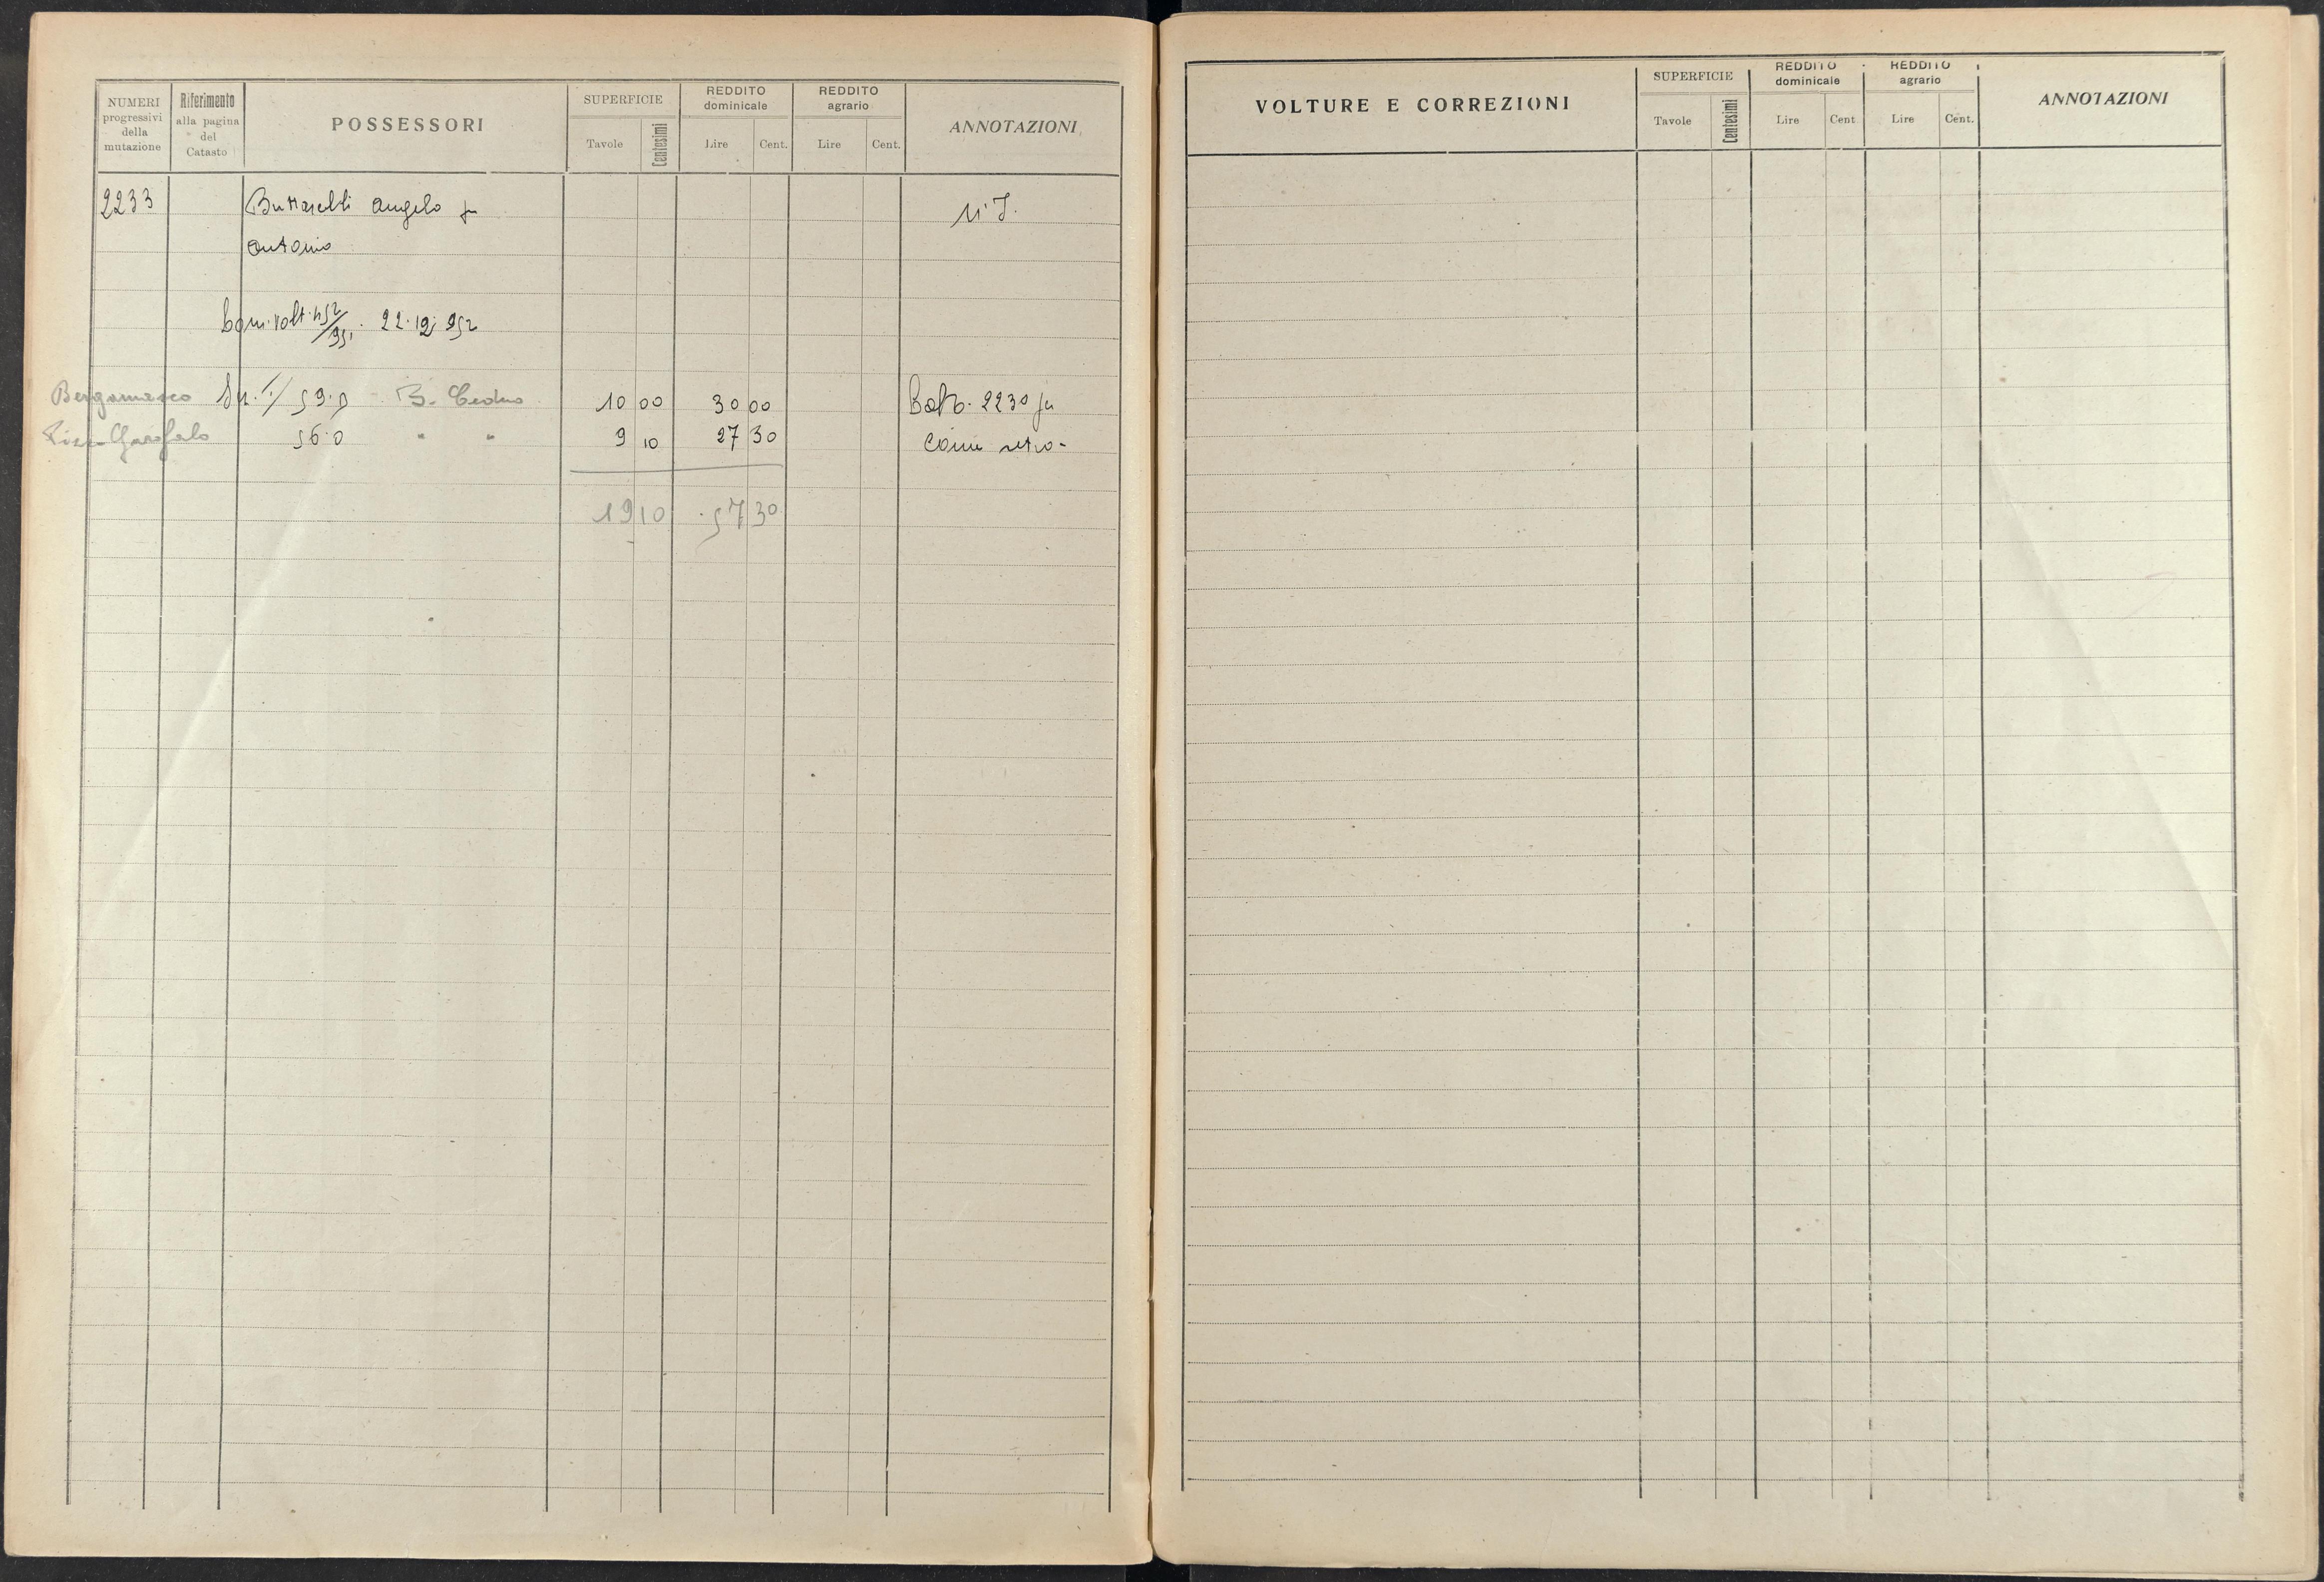 NUMERI progressivi della mutazione
Riferimento alla pagina del Catasto
POSSESSORI
SUPERFICIE
Tavole Centesimi
REDDITO dominicale
Lire Cent.
REDDITO agrario
Lire Cent.
ANNOTAZIONI
2233 Angelo fu
Antonio
22.12.952
Bergamasco 59.0 B. Ceduo 10 00 30 00 2230 fu
Garofalo 56.0 " " 9 10 27 30 Come retro-
19 10 57 30
VOLTURE E CORREZIONI
SUPERFICIE
Tavole Centesimi
REDDITO dominicale
Lire Cent
REDDITO agrario
Lire Cent.
ANNOTAZIONI